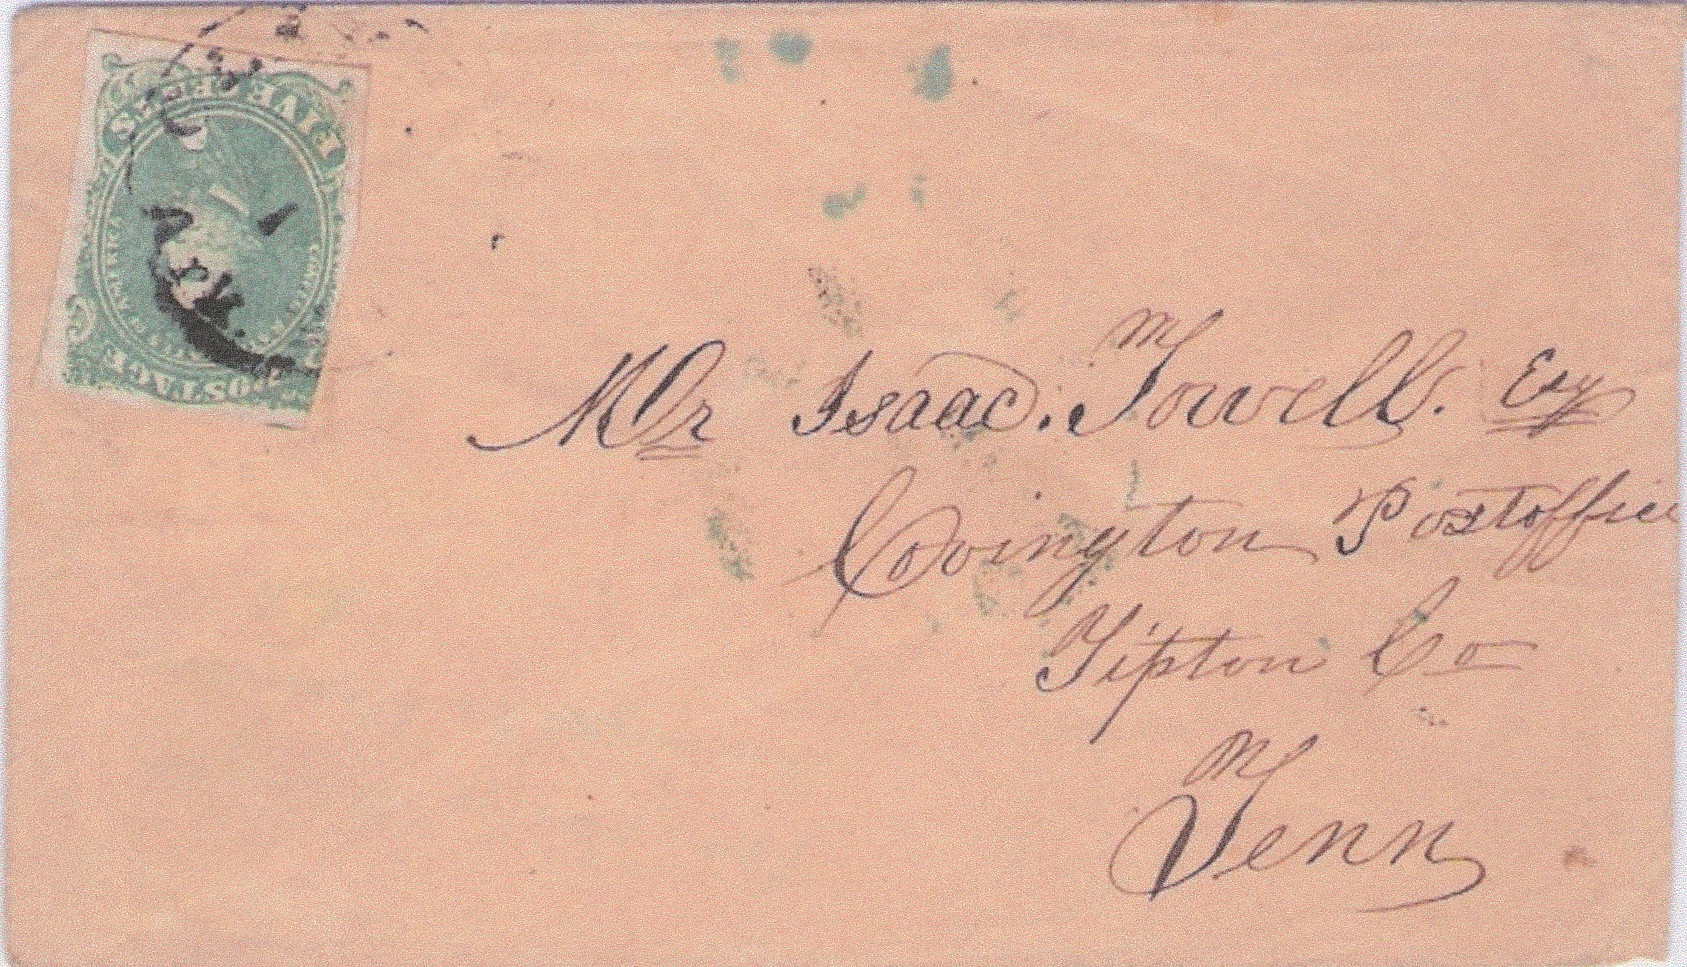 FIVE CENTS
CONFED
AMERICA
POSTAGE
Ark.
Mr Isaac. Towell. Esq
Covington Postoffice
Tipton Co
Tenn